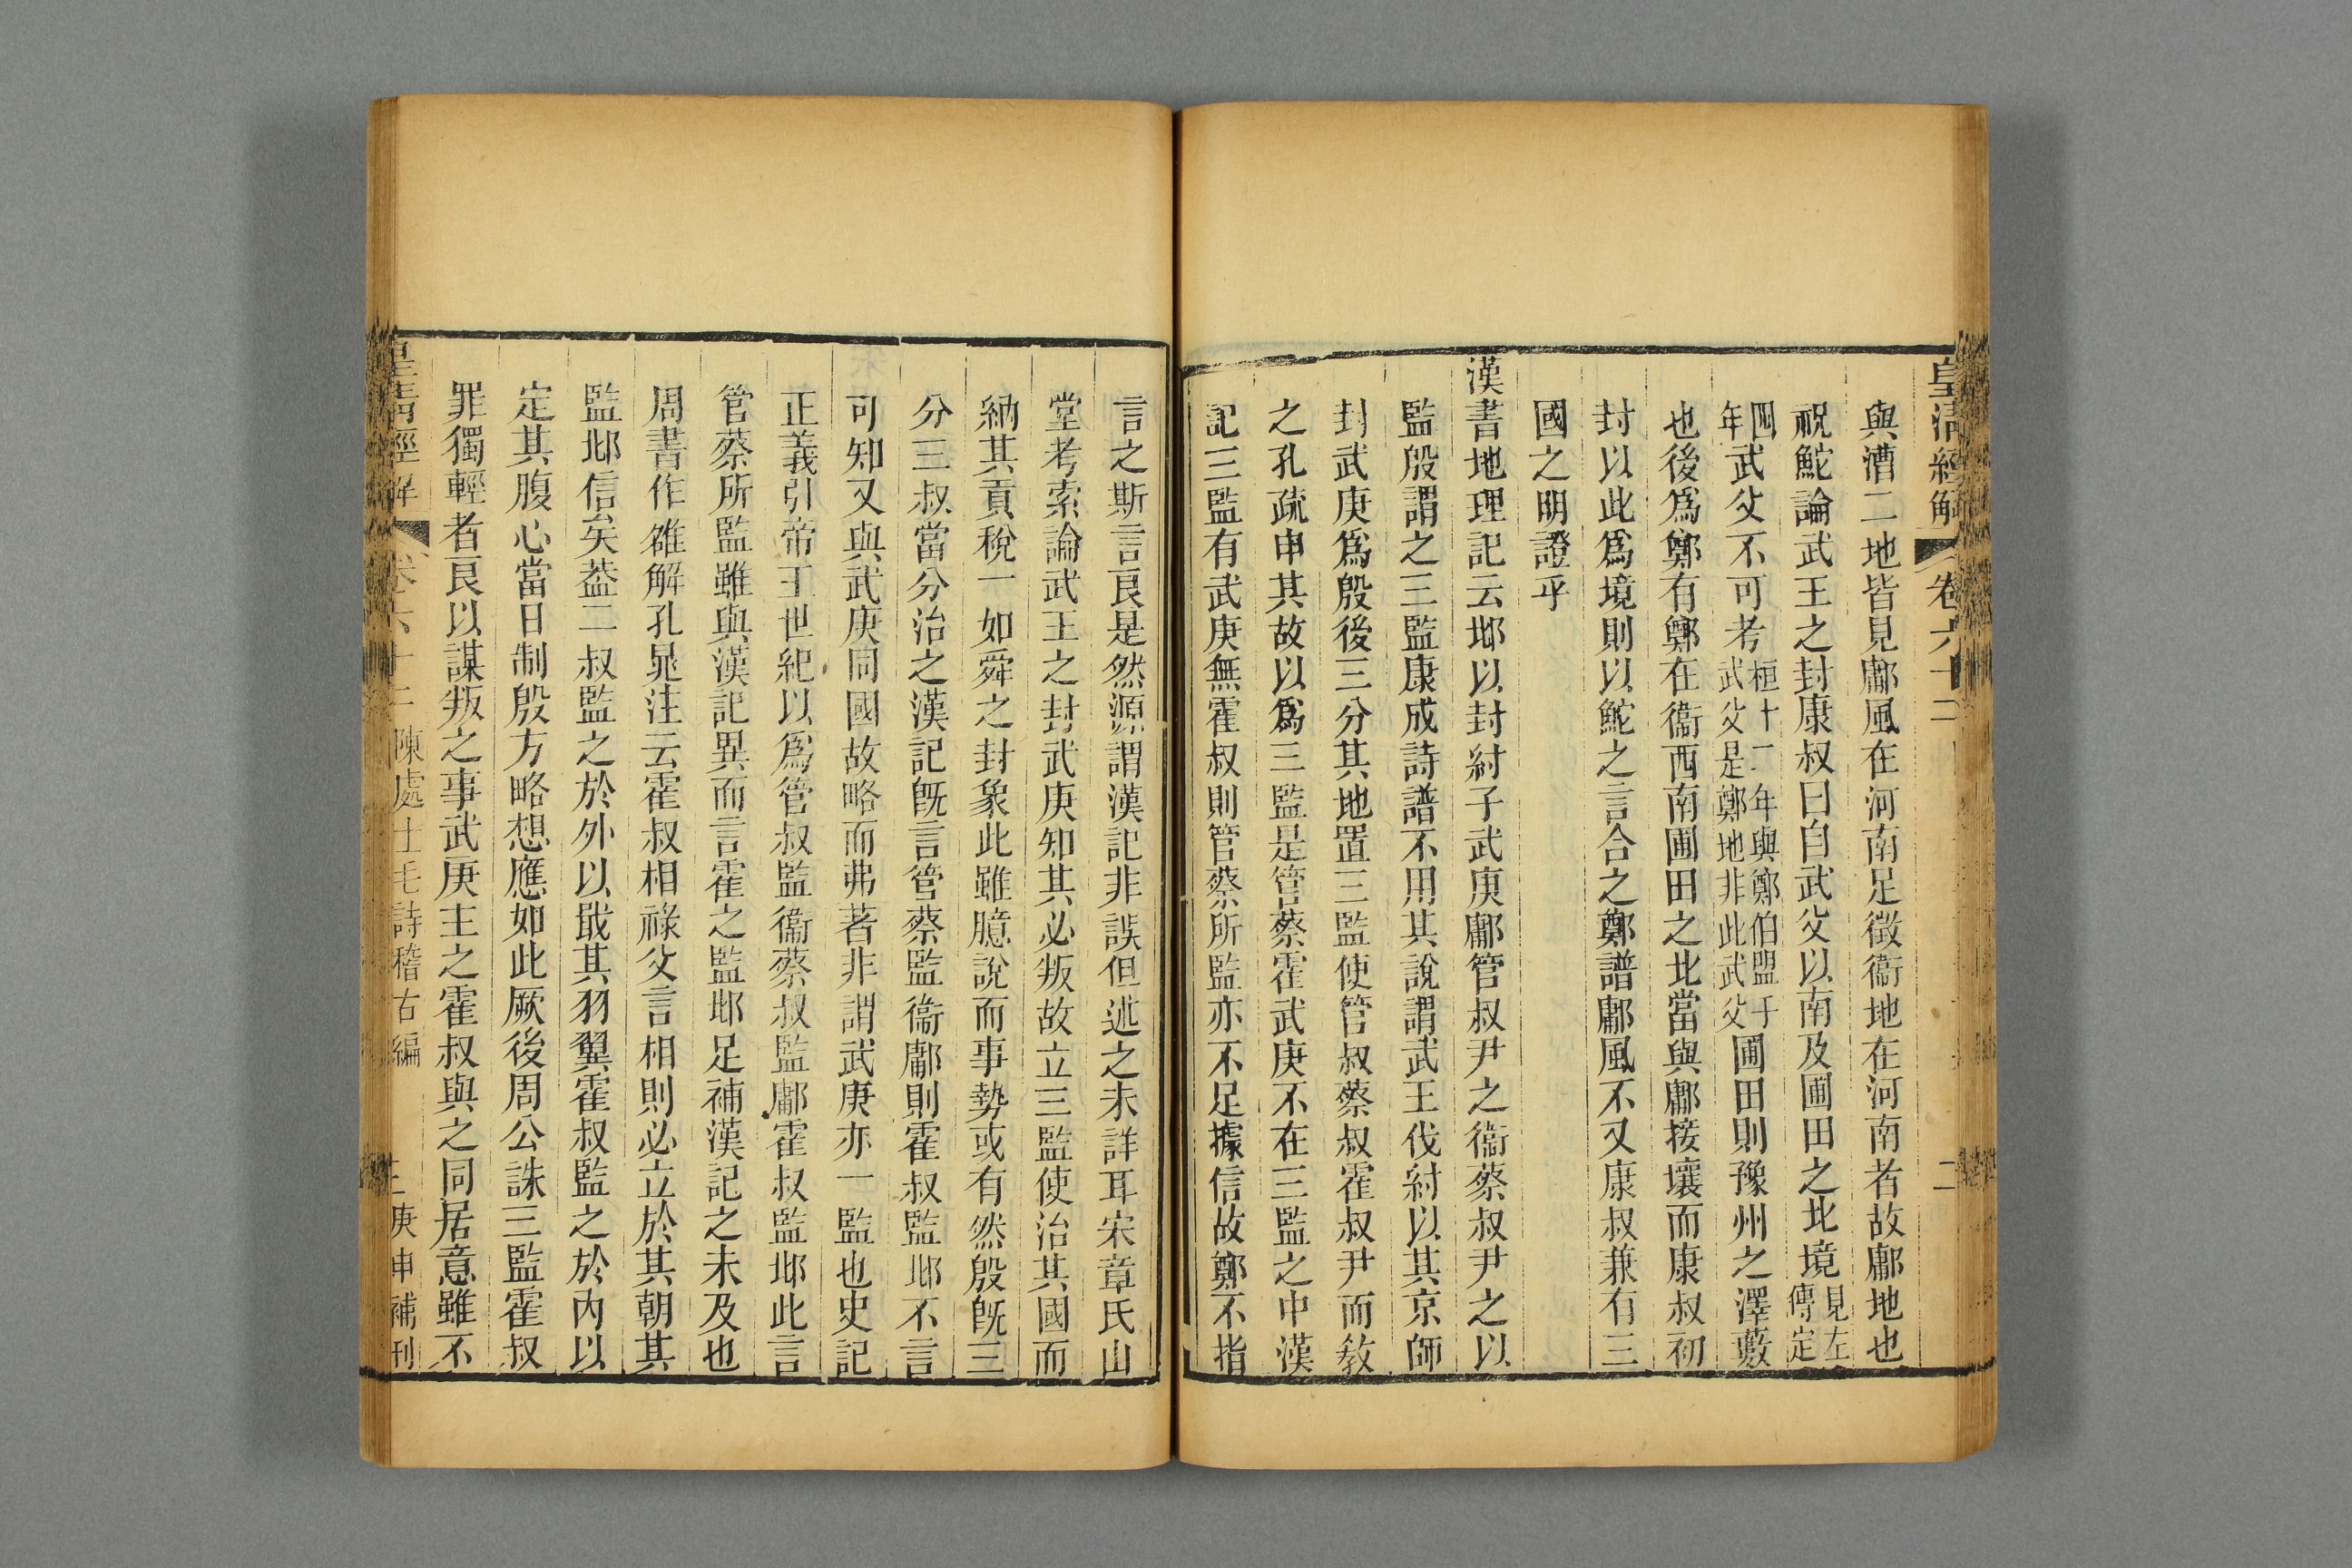 皇清經解 卷六十二 二
與漕二地皆見鄘風在河南足徵衞地在河南者故鄘地也
祝鮀論武王之封康叔曰自武父以南及圃田之北境見左傳定
四年武父不可考桓十二年與鄭伯盟于武父是鄭地非此武父圃田則豫州之澤藪
也後爲鄭有鄭在衞西南圃田之北當與鄘接壤而康叔初
封以此爲境則以鮀之言合之鄭譜鄘風不又康叔兼有三
國之明證乎
漢書地理記云邶以封紂子武庚鄘管叔尹之衞蔡叔尹之以
監殷謂之三監康成詩譜不用其說謂武王伐紂以其京師
封武庚爲殷後三分其地置三監使管叔蔡叔霍叔尹而敎
之孔疏申其故以爲三監是管蔡霍武庚不在三監之中漢
記三監有武庚無霍叔則管蔡所監亦不足據信故鄭不指
言之斯言良是然源謂漢記非誤但述之未詳耳宋章氏山
堂考索論武王之封武庚知其必叛故立三監使治其國而
納其貢稅一如舜之封象此雖臆說而事勢或有然殷旣三
分三叔當分治之漢記旣言管蔡監衞鄘則霍叔監邶不言
可知又與武庚同國故略而弗著非謂武庚亦一監也史記
正義引帝王世紀以爲管叔監衞蔡叔監鄘霍叔監邶此言
管蔡所監雖與漢記異而言霍之監邶足補漢記之未及也
周書作雒解孔晁注云霍叔相祿父言相則必立於其朝其
監邶信矣葢二叔監之於外以戢其羽翼霍叔監之於內以
定其腹心當日制殷方略想應如此厥後周公誅三監霍叔
罪獨輕者良以謀叛之事武庚主之霍叔與之同居意雖不
皇清經解 卷六十二 陳處士毛詩稽古編 三 庚申補刊